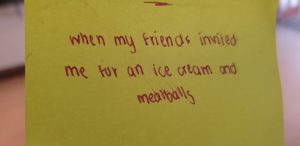 when my friends invited
me for an ice cream and
meatballs